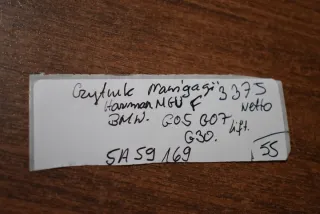 Czytnik Nawigacji 3375
Harman MGU F Netto
BMW. G05 G07 lift.
G30.
5A59169 55